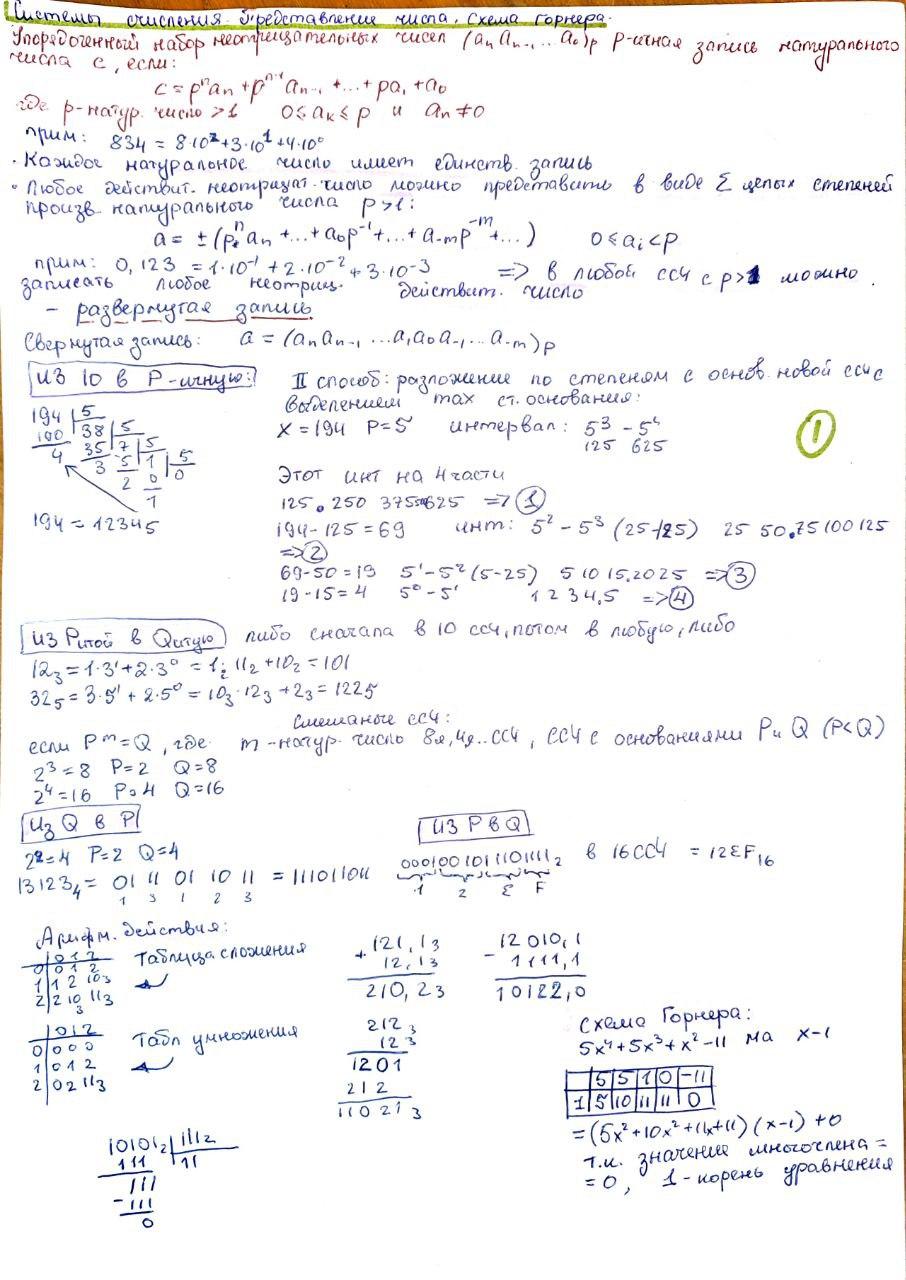 Системы счисления. Представление числа. Схема Горнера.
Упорядоченный набор неотрицательных чисел (aₙ aₙ₋₁ ... a₀)ₚ p-ичная запись натурального
числа c, если:
c = pⁿaₙ + pⁿ⁻¹aₙ₋₁ + ... + pa₁ + a₀
где p-натур. число > 1 0 ≤ aₖ ≤ p и aₙ ≠ 0
прим: 834 = 8·10² + 3·10¹ + 4·10⁰
• Каждое натуральное число имеет единств. запись
• Любое действит. неотрицат. число можно представить в виде Σ целых степеней
произв. натурального числа p>1:
a = ± (pⁿaₙ + ... + a₀p⁻¹ + ... + a₋ₘp⁻ᵐ + ...) 0 ≤ aᵢ < p
прим: 0,123 = 1·10⁻¹ + 2·10⁻² + 3·10⁻³ => в любой ссч с p>1 можно
записать любое неотриц. действит. число
- развернутая запись
Свернутая запись: a = (aₙaₙ₋₁ ...a₁a₀a₋₁ ...a₋ₘ)ₚ
из 10 в P-ичную:
194 5
190 38 5
4 35 7 5
3 5 1 5
2 0 0
1
194 = 1234₅
II способ: разложение по степеням с основ. новой ссч с
выделением max ст. основания:
X = 194 P = 5 интервал: 5³ - 5⁴
125 625
①
Этот инт на 4 части
125 . 250 375 625 => ①
194-125 = 69 инт: 5² - 5³ (25-125) 25 50.75 100 125
=> ②
69-50 = 19 5¹-5² (5-25) 5 10 15.20 25 => ③
19-15 = 4 5⁰-5¹ 1 2 3 4.5 => ④
из Pитой в Qитую либо сначала в 10 ссч, потом в любую, либо
12₃ = 1·3¹ + 2·3⁰ = 1₂·11₂ + 10₂ = 101
32₅ = 3·5¹ + 2·5⁰ = 10₃·12₃ + 2₃ = 122₅
Смешаные ссч:
если Pᵐ = Q, где m-натур. число 8я, 4я.. ссч, ссч с основаниями P и Q (P<Q)
2³ = 8 P=2 Q=8
2⁴ = 16 P=4 Q=16
Из Q в P
2² = 4 P=2 Q=4
13123₄ = 01 11 01 10 11 = 111011011
1 3 1 2 3
из P в Q
0001001011101111₂ в 16 ССЧ = 12EF₁₆
1 2 E F
Арифм. действия:
0 1 2
0 0 1 2
1 1 2 10₃
2 2 10₃ 11₃
Таблица сложения
+ 121,1₃
12,1₃
210,2₃
- 12010,1
1111,1
10122,0
0 1 2
0 0 0 0
1 0 1 2
2 0 2 11₃
Табл умножения
212₃
12₃
1201
212
11021₃
10101₂ 111₂
111 11
111
- 111
0
Схема Горнера:
5x⁴ + 5x³ + x² - 11 на x-1
5 5 1 0 -11
1 5 10 11 11 0
= (5x² + 10x² + 11x + 11) (x-1) + 0
т.к. значение многочлена =
= 0, 1 - корень уравнения